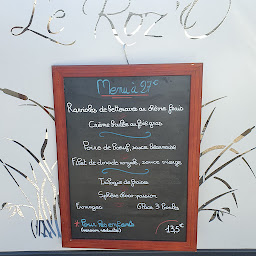 Le Roz'O
Menu à 27€
Ravioles de betteraves au chèvre frais
Crème brûlée au foie gras
Poire de bœuf, sauce béarnaise
Filet de daurade royale, sauce vierge
Trilogie de
Sphère coco-passion
Fromages Glace 3 boules
* Pour les enfants 13,5€